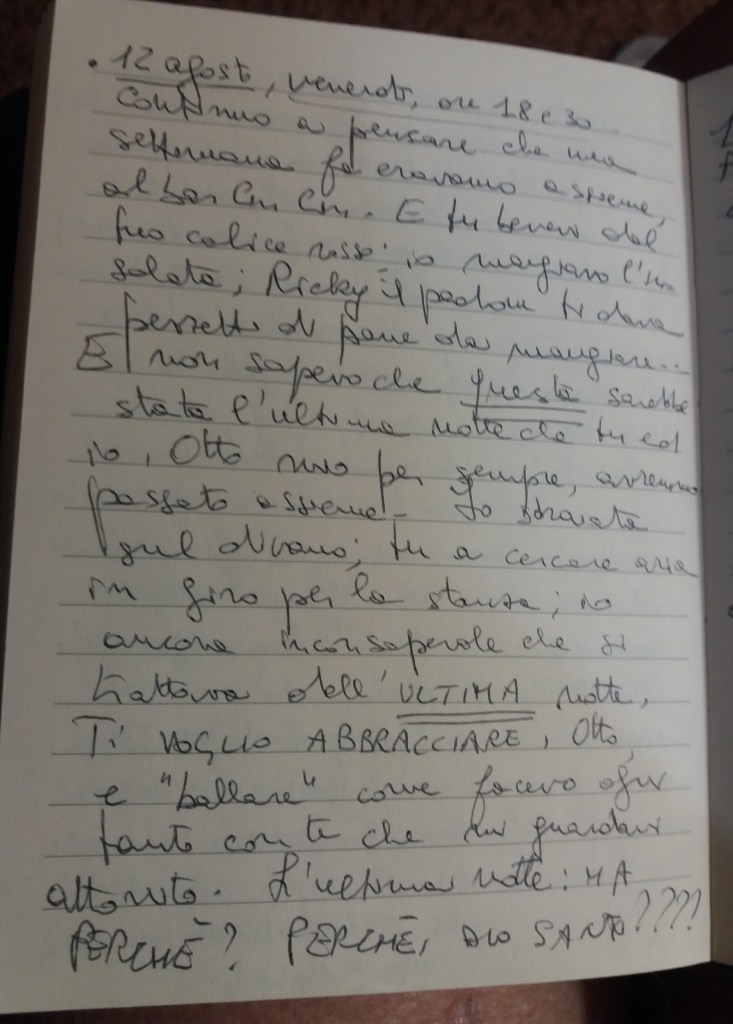 . 12 agosto, venerdì, ore 18 e 30
Continuo a pensare che una
settimana fa eravamo assieme,
al bar Cin Cin. E tu bevevi dal
tuo calice rosso; io mangiavo l'in
salata; Ricky il padrone ti dava
pezzetti di pane da mangiare...
E non sapevo che questa sarebbe
stata l'ultima notte che tu ed
io, Otto mio per sempre, avremmo
passato assieme. Io sdraiata
sul divano; tu a cercare aria
in giro per la stanza; io
ancora inconsapevole che si
trattava dell'ULTIMA notte.
Ti VOGLIO ABBRACCIARE, Otto,
e "ballare" come facevo ogni
tanto con te che mi guardavi
attonito. L'ultima notte: MA
PERCHÈ? PERCHÈ, DIO SANTO????